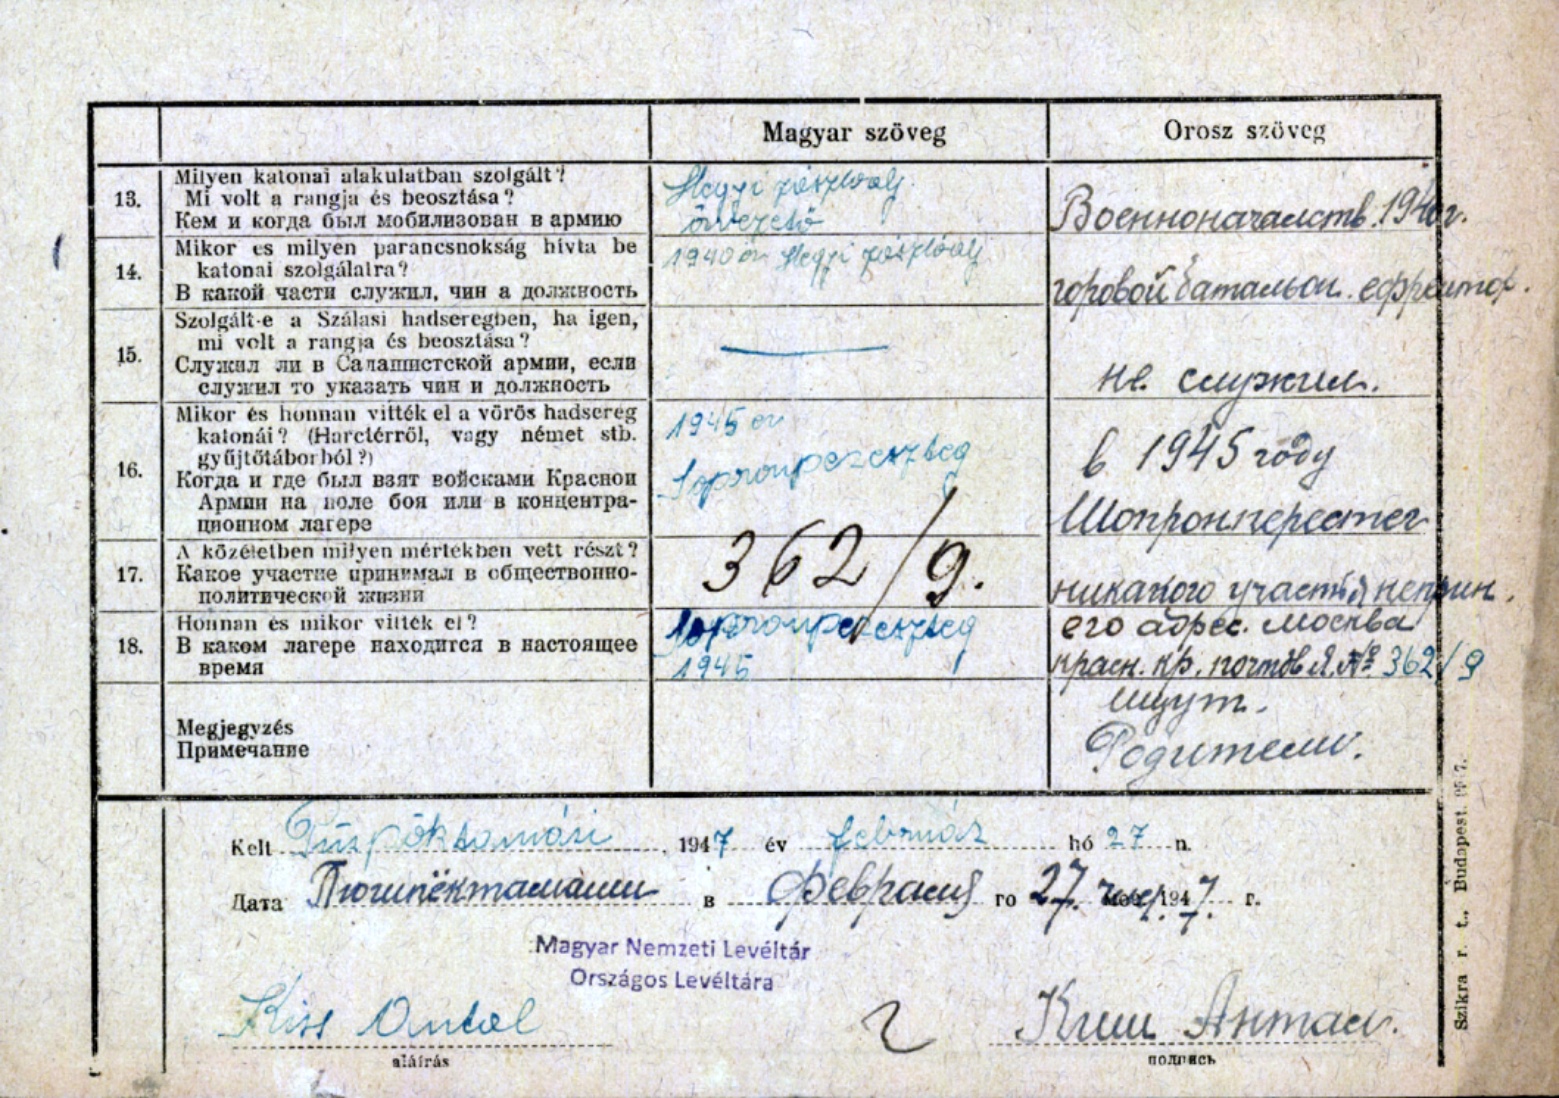 Magyar szöveg
Orosz szöveg
13.
Milyen katonai alakulatban szolgált?
Mi volt a rangja és beosztása?
Кем и когда был мобилизован в армию
Hegyi zászloalj
örvezető
Военноначальств. 1940г.
14.
Mikor és milyen parancsnokság hívta be
katonai szolgálatra?
В какой части служил, чин а должность
1940 én Hegyi zászlóalj
горовой батальон. ефрейтор.
15.
Szolgált-e a Szálasi hadseregben, ha igen,
mi volt a rangja és beosztása?
Служил ли в Салашистской армии, если
служил то указать чин и должность
не служил.
16.
Mikor és honnan vitték el a vörös hadsereg
katonái? (Harctérről, vagy német stb.
gyűjtőtáborból?)
Когда и где был взят войсками Красной
Армии на поле боя или в концентра-
ционном лагере
1945 év
Sopronpereszteg
в 1945 году
Шопронперестег
17.
A közéletben milyen mértékben vett részt?
Какое участие принимал в общественно-
политической жизни
362/9.
никакого участья неприн.
18.
Honnan és mikor vitték el?
В каком лагере находится в настоящее
время
Sopronpereszteg
1945
его адрес. Москва
красн. кр. почтов Я. № 362/9
Megjegyzés
Примечание
ищут.
Родители.
Kelt Püspöktamási, 1947 év február hó 27 n.
Дата Пюшпёктамаши в февраля го 27. 1947. г.
Magyar Nemzeti Levéltár
Országos Levéltára
Kiss Antal
Киш Антал.
aláírás
подпись
Szikra r. t., Budapest.